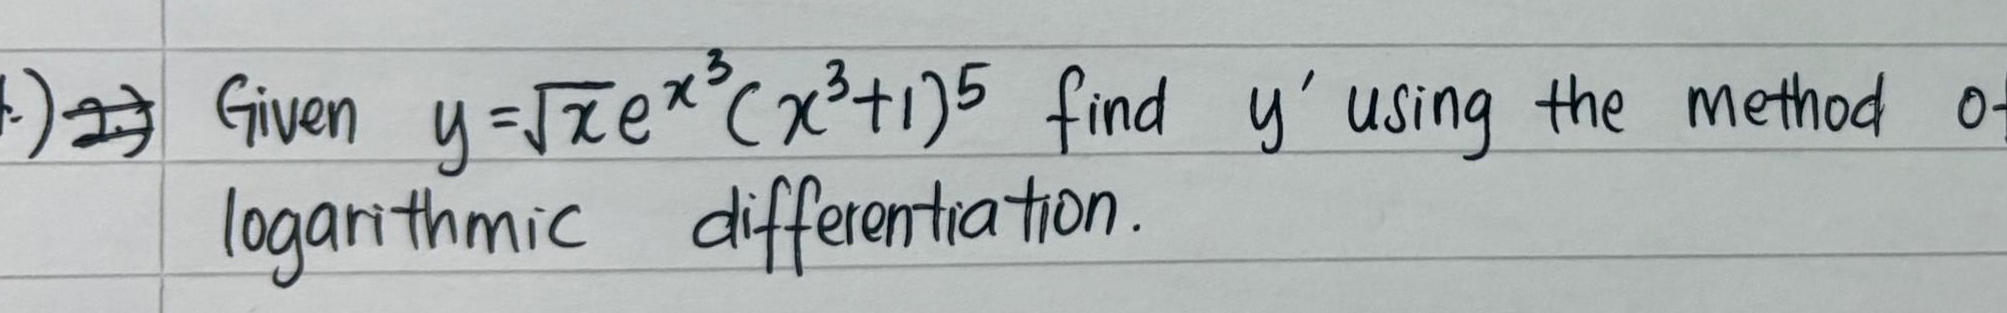 Given y=√x e^x^3 (x^3+1)^5 find y' using the method
logarithmic differentiation.